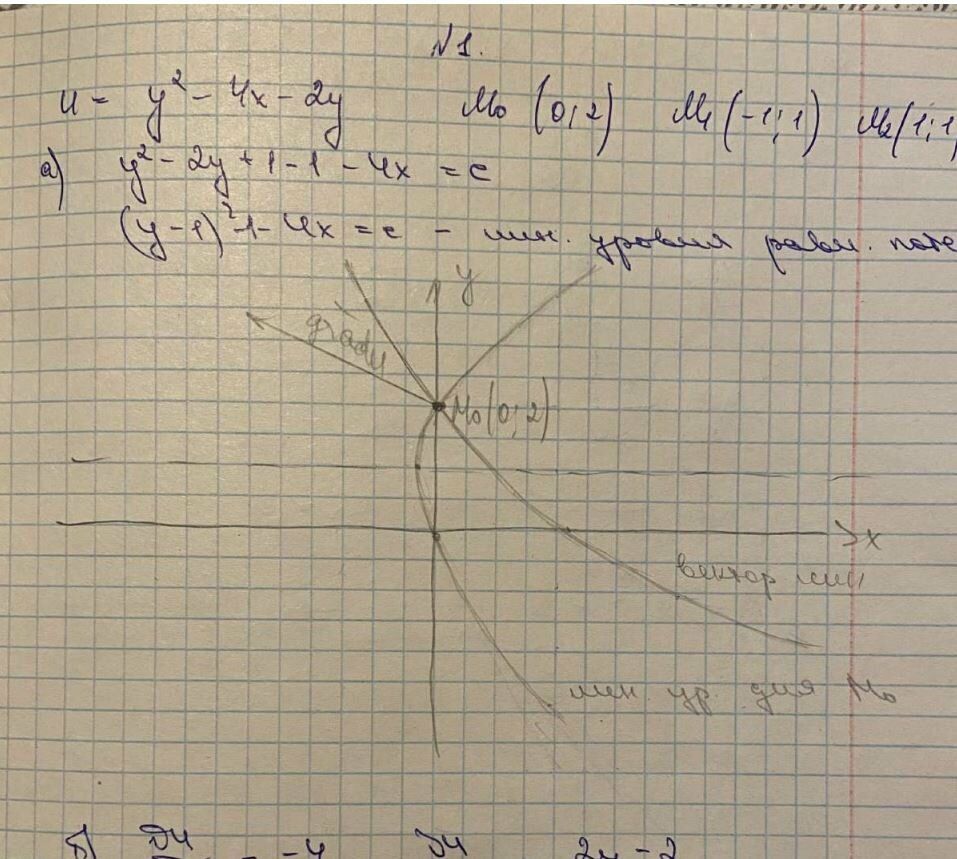 N1.
u = y² - 4x - 2y    M₀ (0; 2)    M₁ (-1; 1)    M₂(1; 1
а) y² - 2y + 1 - 1 - 4x = c
(y - 1)² - 1 - 4x = c - лин. уровня равн. поте
y
gradu
M₀(0; 2)
x
вектор лин
лин. ур. для M₀
б) ∂u = -4    ∂u    2y - 2